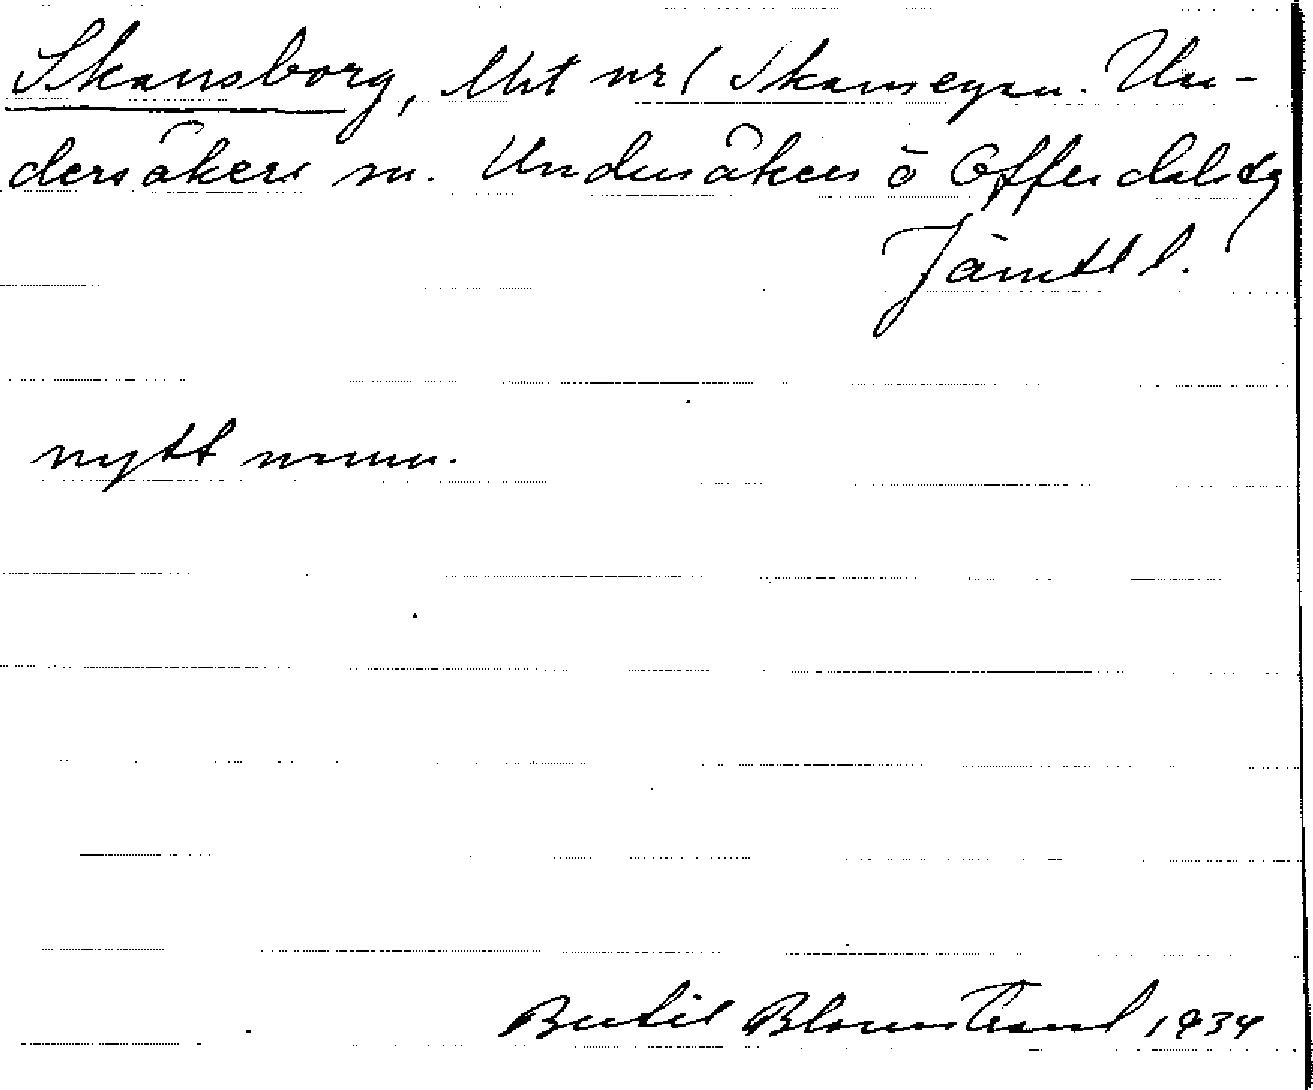 Skansborg, lht nr 1 Skansegra. Un-
dersåkers sn. Undersåkers o Offerdals tg
Jämtl l.
nytt namn.
Bertil Blomstrand 1934